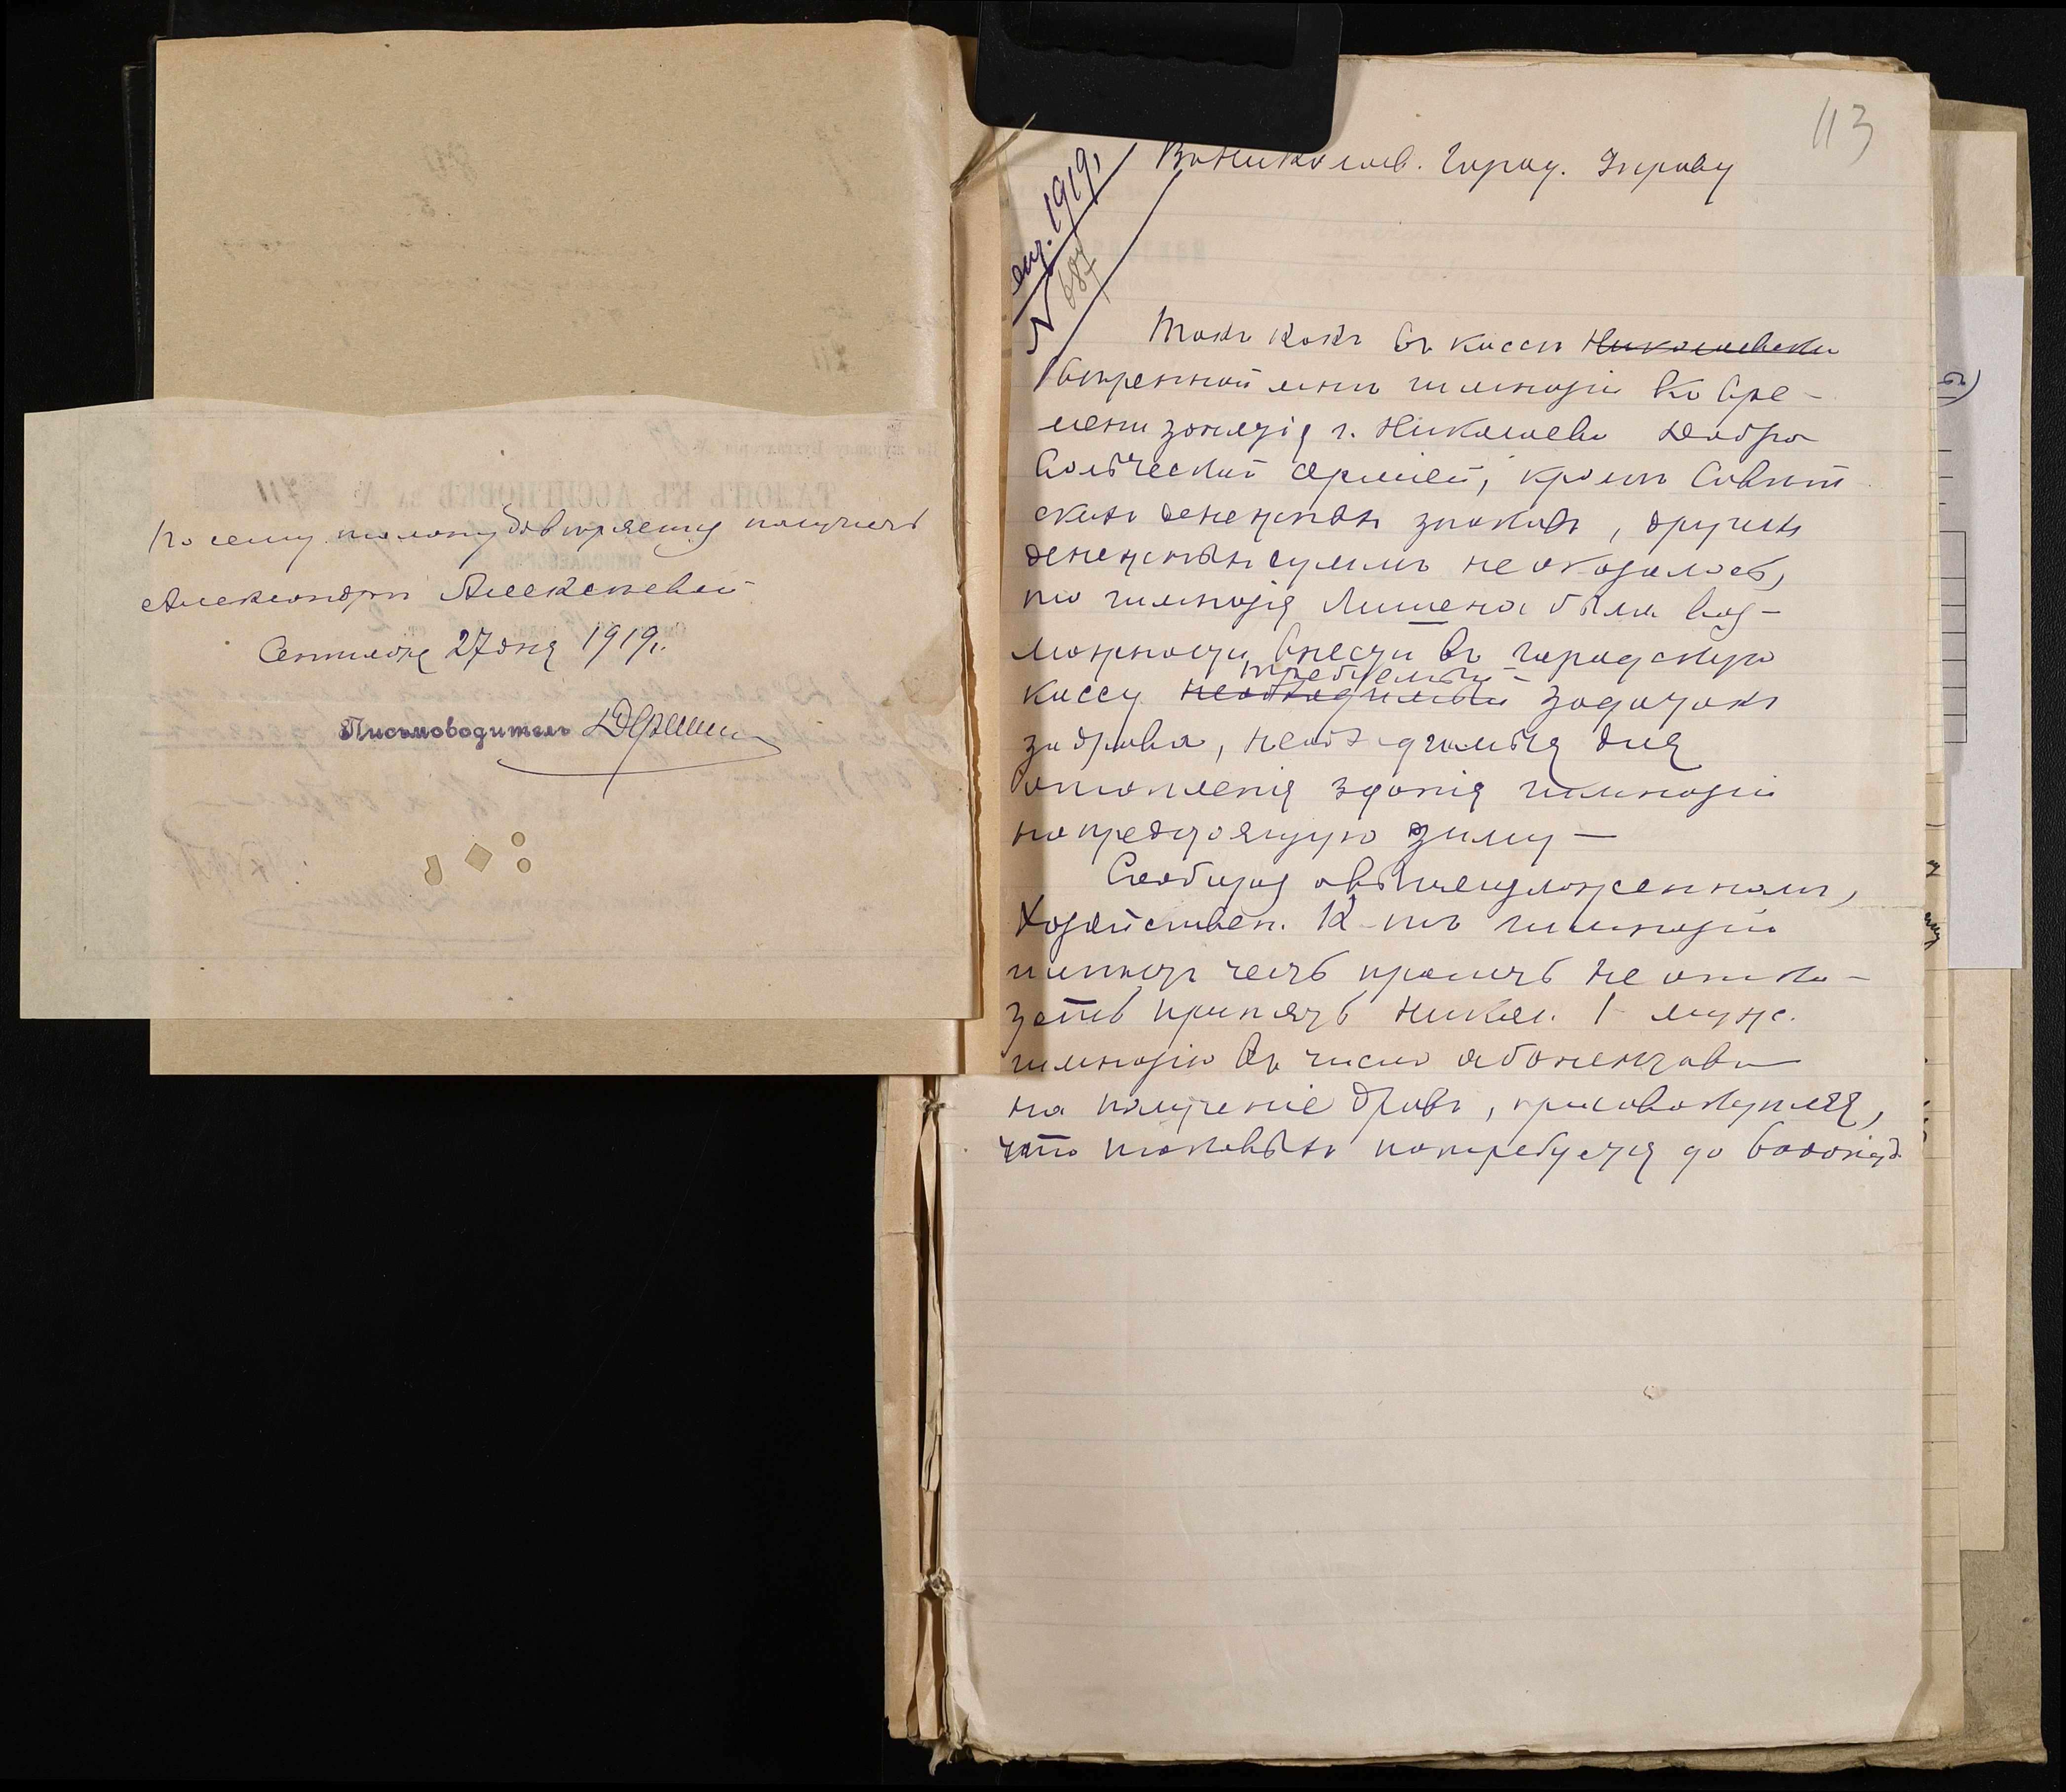 По сему талону довѣряется получить
Александрѣ Алексѣевой
Сентября 27 дня 1919 г.
Письмоводитель
113
1919 г.
№ 687
Въ Николаев. Город. Управу
Такъ какъ въ кассѣ Николаевской
ввѣренной мнѣ гимназіи ко вре-
мени занятія г. Николаева Добро
вольческой арміей, кромѣ Совѣт
скихъ денежныхъ знаковъ, другихъ
денежныхъ суммъ не оказалось,
то гимназія лишена была воз-
можности внести въ городскую
требуемый
кассу необходимый задатокъ
за дрова, необходимыя для
отопленія зданія гимназіи
на предстоящую зиму —
Сообщая о вышеизложенномъ,
Хозяйствен. К-тъ гимназіи
имѣетъ честь просить не отка-
зать принять Никол. I муж.
гимназію въ число абонентовъ
на полученіе дровъ, присовокупляя,
что таковыхъ потребуется до